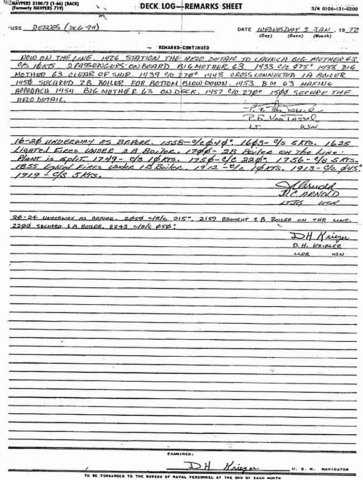 NAVPERS 3100/2 (1-66) (BACK)
(Formerly NAVPERS 719)
DECK LOG—REMARKS SHEET
S/N 0106-131-0200
USS
DATE WEDNESDAY 3 JAN, 19 72
(Day) (Date) (Month)
REMARKS—CONTINUED
NOW ON THE LINE. 1426 STATION THE HELO DETAIL TO LAUNCH BIG MOTHER 63.
2 PASSENGERS ON BOARD BIG MOTHER 63. 1433 C/C 275° 1438 BIG
MOTHER 63 CLEAR OF SHIP. 1439 C/C 270° 1448 CROSS CONNECTED 1A BOILER
1450 SECURED 2A BOILER FOR BOTTOM BLOW DOWN. 1453 B M 63 MAKING
APPROACH 1454 BIG MOTHER 63 ON DECK. 1457 C/C 270° 1504 SECURE THE
HELO DETAIL.
LT USN
16-20 UNDERWAY AS BEFORE. 1558-C/C 040° 1603-C/S 5 KTS. 1625
LIGHTED FIRES UNDER 2B BOILER. 1700- 2B BOILER ON THE LINE-
PLANT IS SPLIT. 1749- C/S 10 KTS. 1750-C/C 220°. 1756- C/S 5 KTS.
1835 LIGHT FIRES UNDER 1B BOILER. 1912-C/S 10 KTS. 1913-C/C 045°
1919- C/S 5 KTS.
ARNOLD
LTJG USN
20-24 UNDERWAY AS BEFORE. 2040 C/C 215°. 2157 BROUGHT 1B BOILER ON THE LINE.
2200 SECURED 1A BOILER. 2243 C/C 050°.
D H Krieger
D. H. KRIEGER
USN
EXAMINED:
D H Krieger
U. S. NAVY
NAVIGATOR
TO BE FORWARDED TO THE BUREAU OF NAVAL PERSONNEL AT THE END OF EACH MONTH